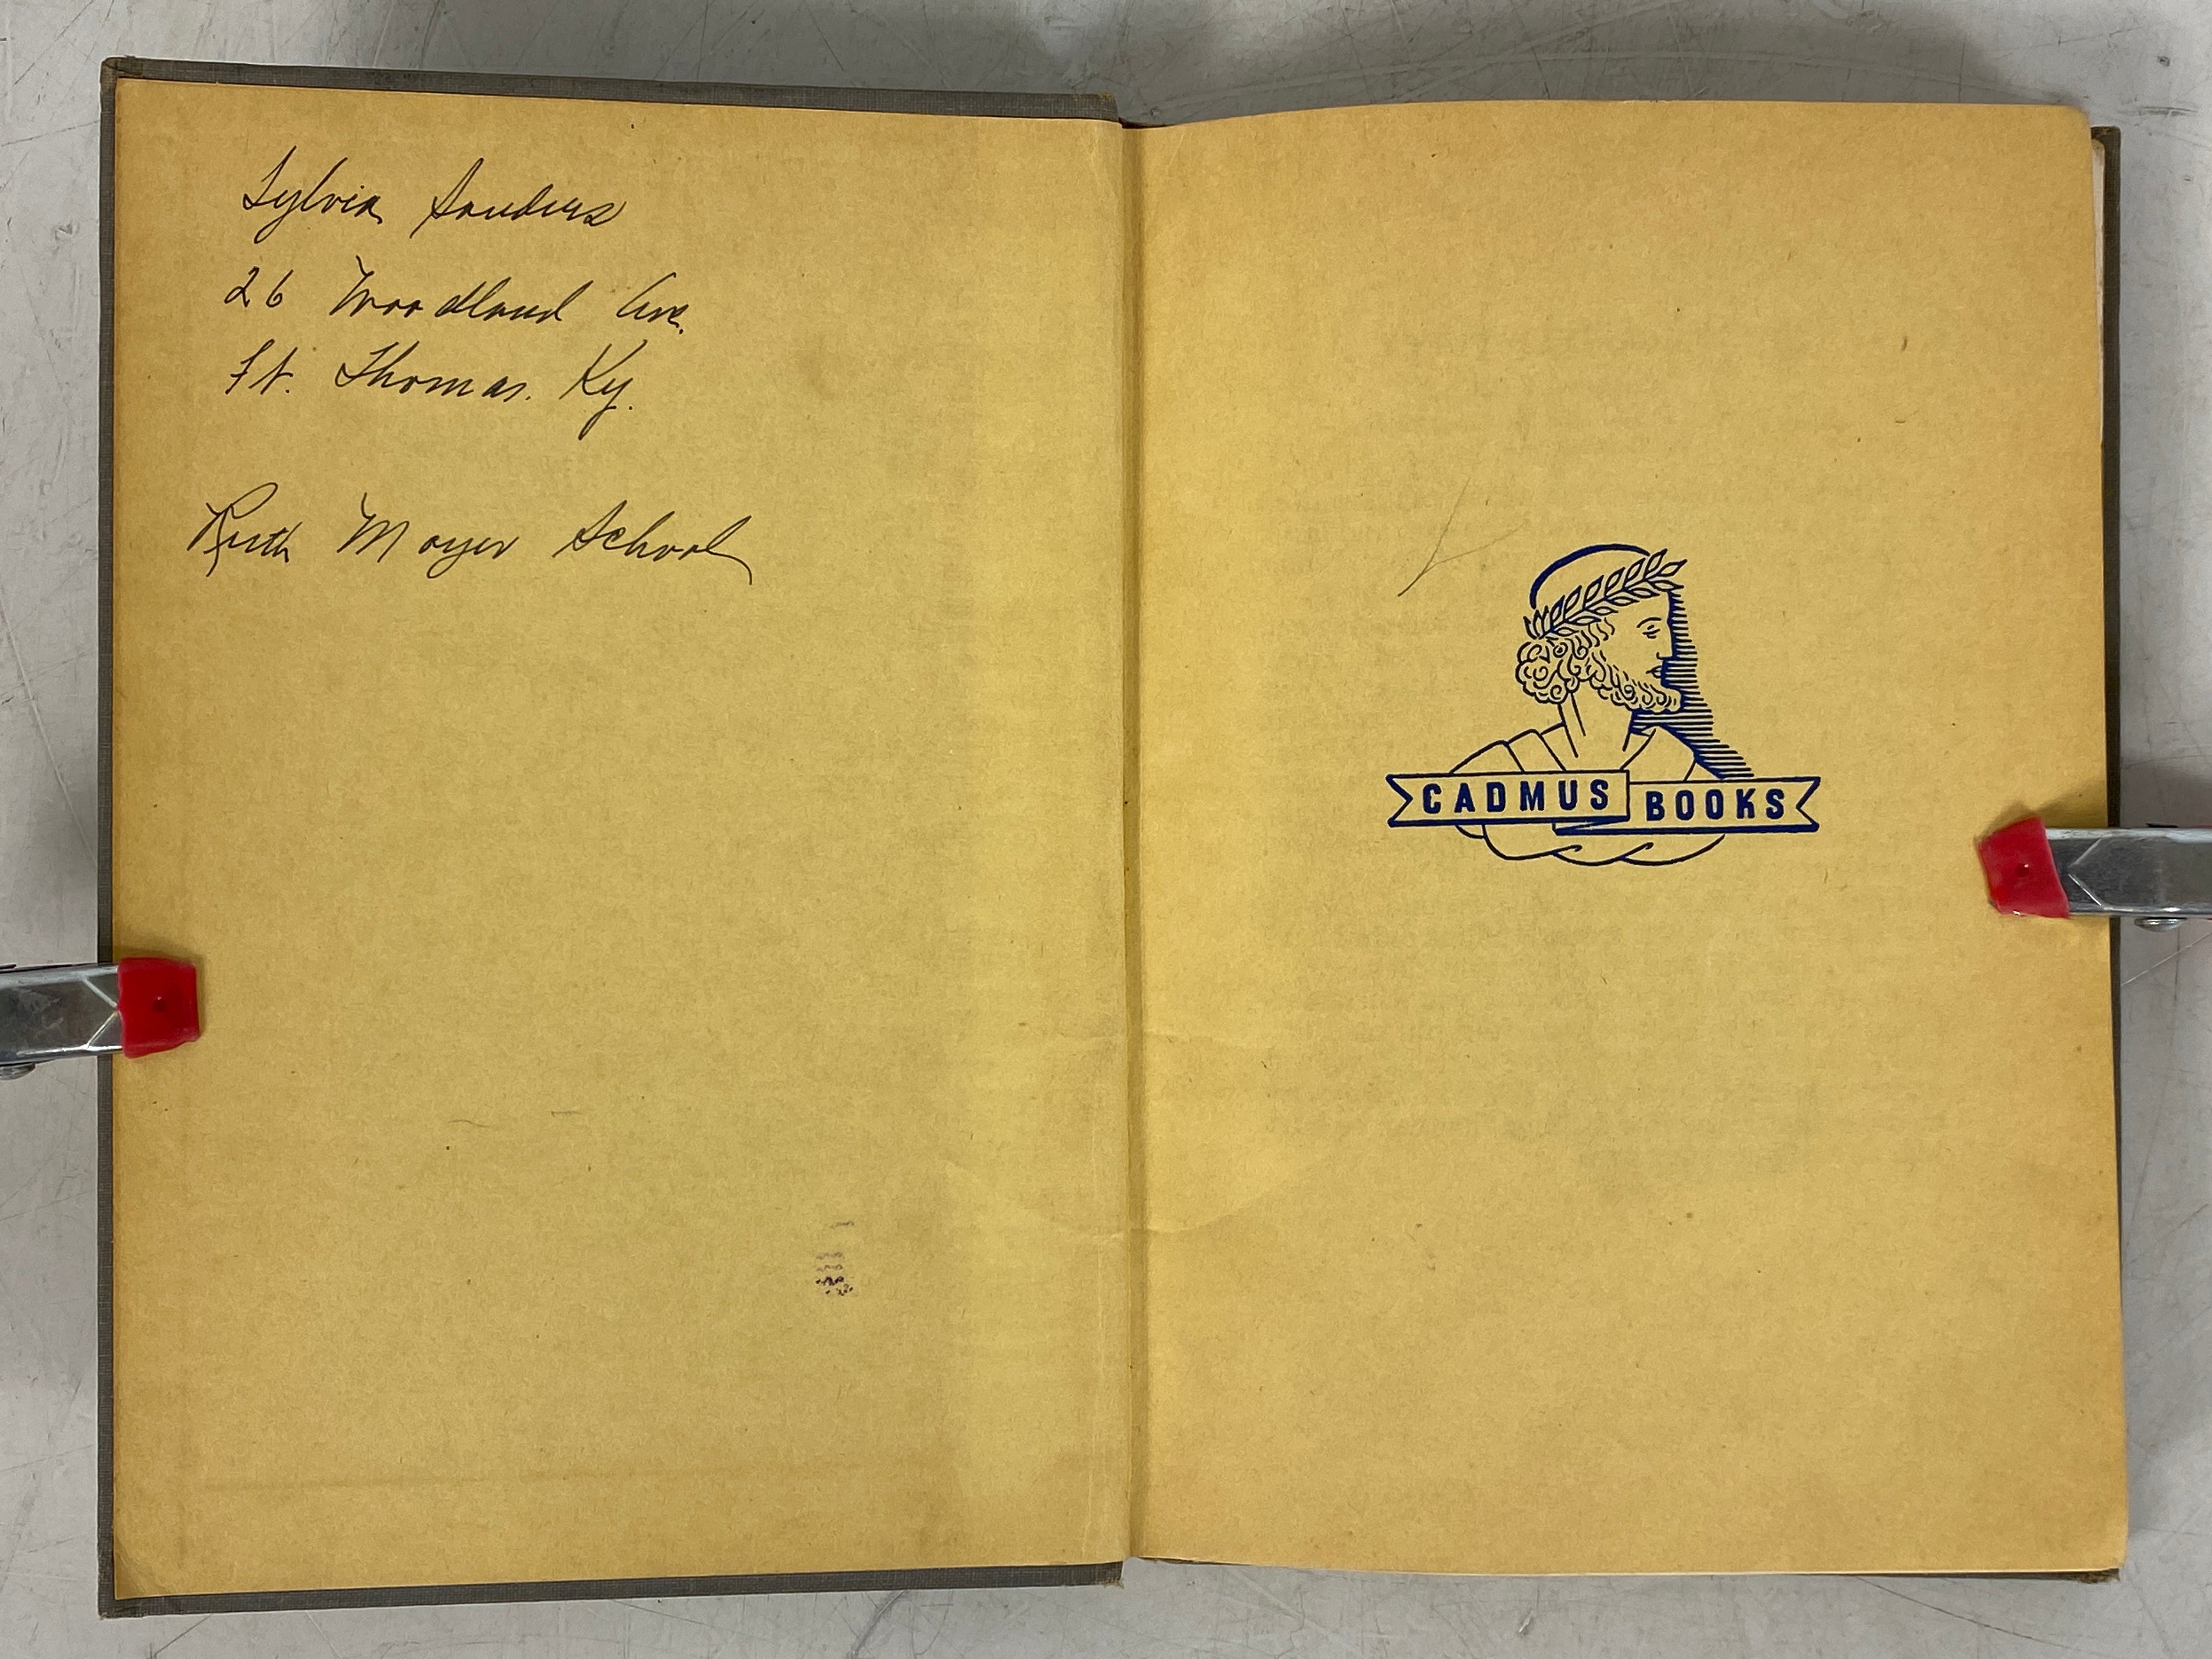 Sylvia Sanders
26 Woodland Ave.
Ft. Thomas. Ky.
Ruth Moyer School
CADMUS BOOKS